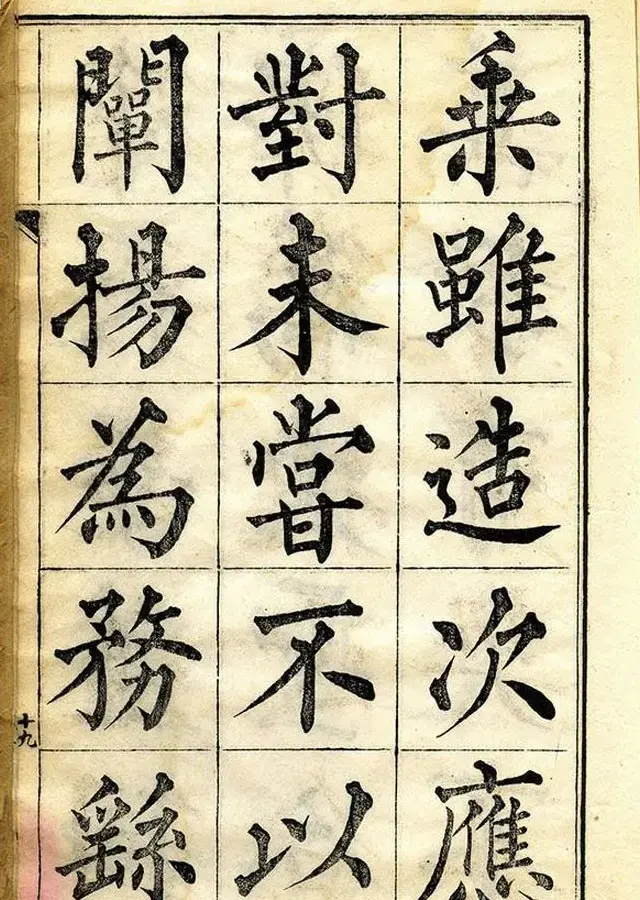 乗雖造次應
對未甞不以
闡揚為務繇
十九